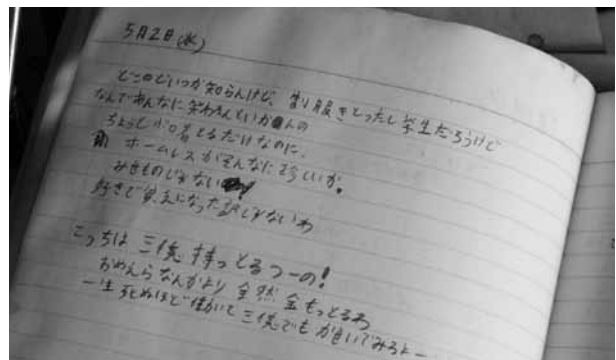 5月2日(水)
どこのどいつか知らんけど、制服きとったし学生だろうけど
なんであんなに笑われんといかんの
ちょっとじがるだけなのに、
ホームレスがそんなに珍しいか。
みせものじゃない!
好きで貧乏になった訳じゃないわ
こっちは三億持っとるつーの!
おめんらなんかより全然金もっとるわ
一生死ぬほど働いて三億でもかせいでみろよー